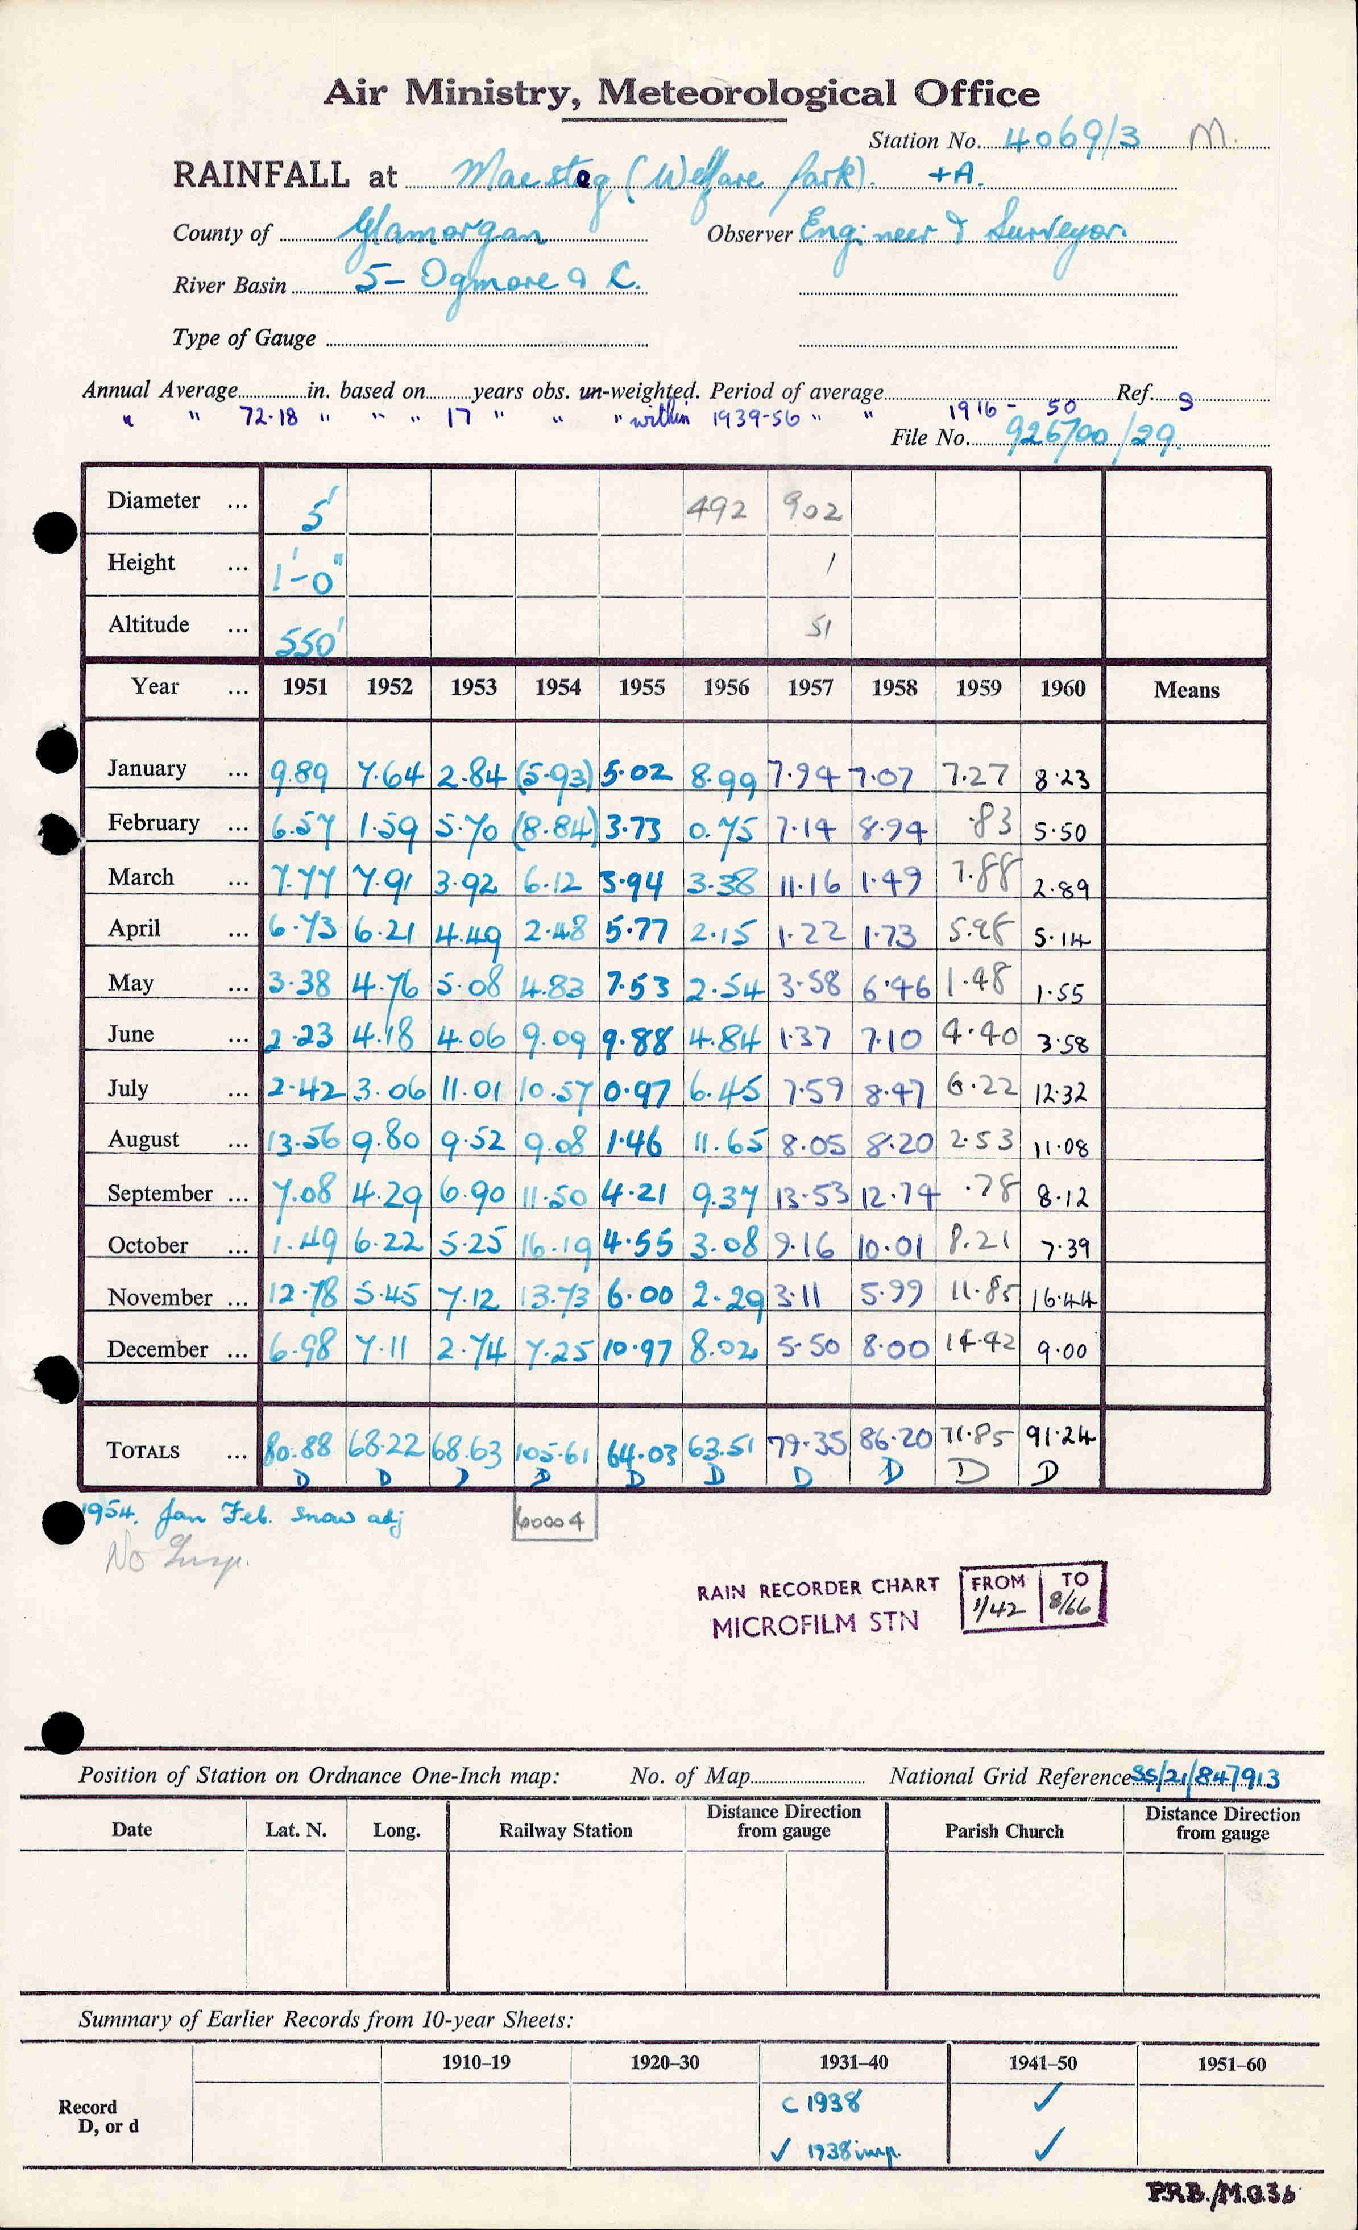 Air Ministry, Meteorological Office
Station No. 4069/3 M.
RAINFALL at Maesteg (Welfare Park). +A.
County of Glamorgan Observer Engineer & Surveyor.
River Basin 5- Ogmore & C.
Type of Gauge
Annual Average in. based on years obs. un-weighted. Period of average Ref. S
" " 72·18 " " " 17 " " " within 1939-56 " " 1916-50
File No. 926700/29.
Diameter ... 5" 492 902
Height ... 1'-0" 1
Altitude ... 550' 51
Year ... 1951 1952 1953 1954 1955 1956 1957 1958 1959 1960 Means
January ... 9.89 7.64 2.84 (5.93) 5.02 8.99 7.94 7.07 7.27 8.23
February ... 6.57 1.59 5.70 (8.84) 3.73 0.75 7.14 8.94 .83 5.50
March ... 7.77 7.91 3.92 6.12 3.94 3.38 11.16 1.49 7.88 2.89
April ... 6.73 6.21 4.49 2.48 5.77 2.15 1.22 1.73 5.98 5.14
May ... 3.38 4.76 5.08 4.83 7.53 2.54 3.58 6.46 1.48 1.55
June ... 2.23 4.18 4.06 9.09 9.88 4.84 1.37 7.10 4.40 3.58
July ... 2.42 3.06 11.01 10.57 0.97 6.45 7.59 8.47 6.22 12.32
August ... 13.56 9.80 9.52 9.08 1.46 11.65 8.05 8.20 2.53 11.08
September ... 7.08 4.29 6.90 11.50 4.21 9.37 13.53 12.74 .78 8.12
October ... 1.49 6.22 5.25 16.19 4.55 3.08 9.16 10.01 8.21 7.39
November ... 12.78 5.45 7.12 13.73 6.00 2.29 3.11 5.99 11.85 16.44
December ... 6.98 7.11 2.74 7.25 10.97 8.02 5.50 8.00 14.42 9.00
TOTALS ... 80.88 68.22 68.63 105.61 64.03 63.51 79.35 86.20 71.85 91.24
D D D D D D D D D D
1954. Jan Feb. snow adj 60004
No Insp.
RAIN RECORDER CHART FROM TO
MICROFILM STN 1/42 8/66
Position of Station on Ordnance One-Inch map: No. of Map National Grid Reference SS/21/847913
Date Lat. N. Long. Railway Station Distance Direction from gauge Parish Church Distance Direction from gauge
Summary of Earlier Records from 10-year Sheets:
1910–19 1920–30 1931–40 1941–50 1951–60
Record C 1938 ✓
D, or d ✓ 1938 imp. ✓
P.R.B./M.O.36